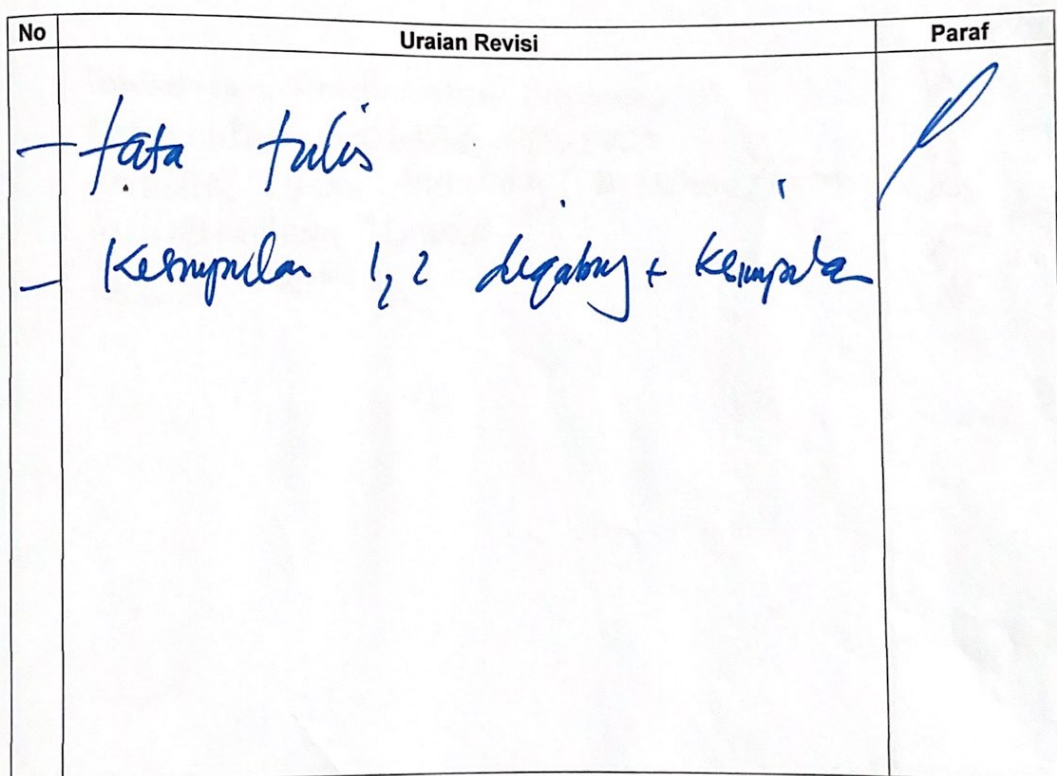 No Uraian Revisi Paraf
- tata tulis
- Kesimpulan 1, 2 digabung + Kesimpulan